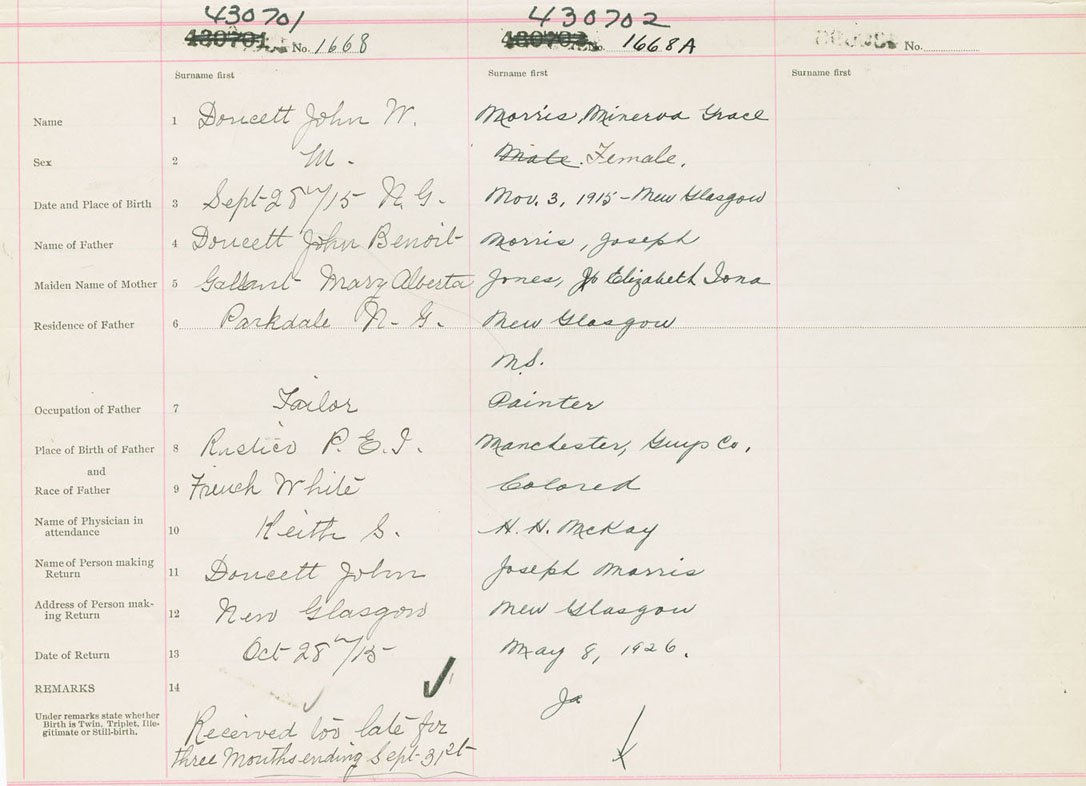 430701 430702
430701 No. 1668 430702 No. 1668A No.
Surname first Surname first Surname first
Name 1 Doucett John W. Morris, Minerva Grace
Sex 2 M. Male Female.
Date and Place of Birth 3 Sept 28th/15 N. G. Nov. 3, 1915 - New Glasgow
Name of Father 4 Doucett John Benoit Morris, Joseph
Maiden Name of Mother 5 Gallant Mary Alberta Jones, Elizabeth Iona
Residence of Father 6 Parkdale N. G. New Glasgow
N.S.
Occupation of Father 7 Tailor Painter
Place of Birth of Father 8 Rustico P. E. I. Manchester, Guys Co.
and
Race of Father 9 French White Colored
Name of Physician in
attendance 10 Keith S. H. H. McKay
Name of Person making
Return 11 Doucett John Joseph Morris
Address of Person mak-
ing Return 12 New Glasgow New Glasgow
Date of Return 13 Oct 28th/15 May 8, 1926.
REMARKS 14
Under remarks state whether
Birth is Twin, Triplet, Ille-
gitimate or Still-birth.
Received too late for
three Months ending Sept 31st